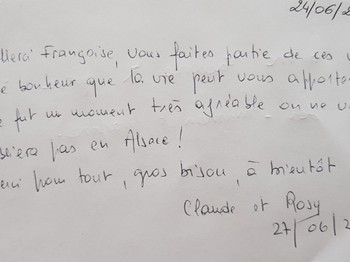 24/06/2
Merci Françoise, vous faites partie de ces
bonheur que la vie peut vous apporter
fut un moment très agréable on ne
pas en Alsace !
pour tout, gros bisou, à bientôt
Claude et Rosy
27/06/2